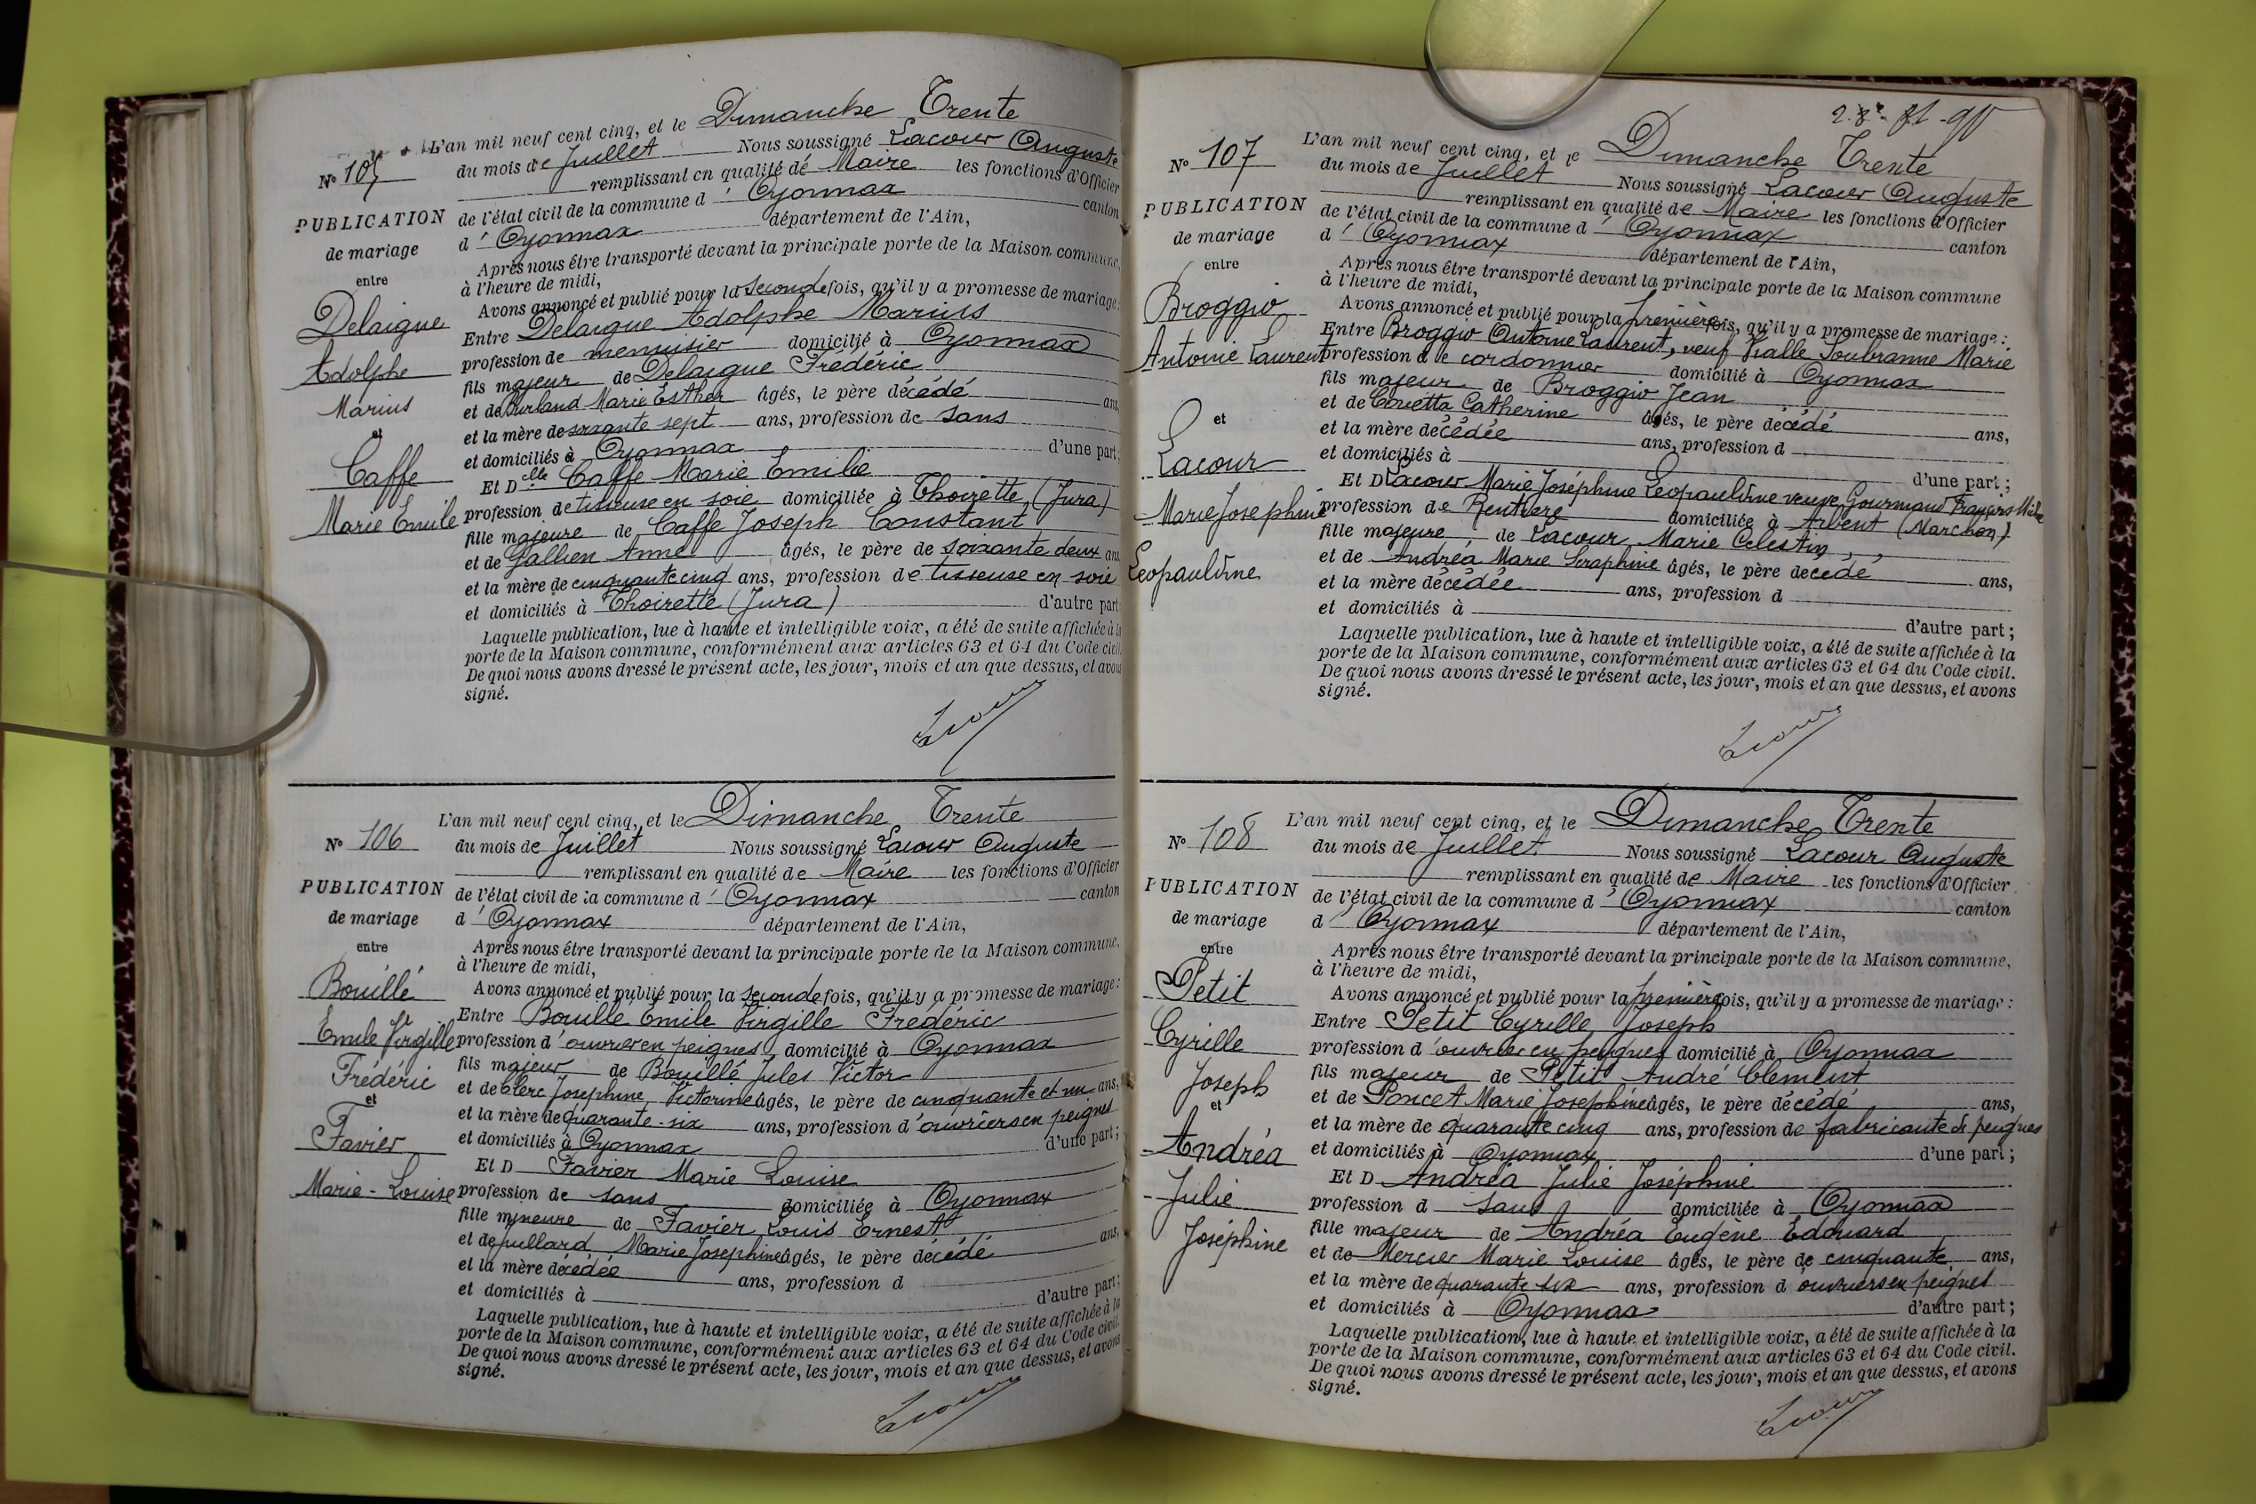 L'an mil neuf cent cinq, et le Dimanche Trente
N° 105
du mois de Juillet Nous soussigné Lacour Auguste
remplissant en qualité de Maire les fonctions d'Officier
PUBLICATION
de mariage
entre
Delaigue
Adolphe
Marius
et
Caffe
Marie Emile
de l'état civil de la commune d' Oyonnax canton
d' Oyonnax département de l'Ain,
Après nous être transporté devant la principale porte de la Maison commune,
à l'heure de midi,
Avons annoncé et publié pour la seconde fois, qu'il y a promesse de mariage:
Entre Delaigue Adolphe Marius
profession de menuisier domicilié à Oyonnax
fils majeur de Delaigue Frédéric
et de Marie Esther âgés, le père décédé ans,
et la mère de soixante sept ans, profession de sans
et domiciliés à Oyonnax d'une part;
Et Delle Caffe Marie Emilie
profession de tisseuse en soie domiciliée à Thoirette (Jura)
fille majeure de Caffe Joseph Constant
et de Gallien Anne âgés, le père de soixante deux ans
et la mère de cinquante cinq ans, profession de tisseuse en soie
et domiciliés à Thoirette (Jura) d'autre part
Laquelle publication, lue à haute et intelligible voix, a été de suite affichée à la
porte de la Maison commune, conformément aux articles 63 et 64 du Code civil.
De quoi nous avons dressé le présent acte, les jour, mois et an que dessus, et avons
signé.
Lacour
L'an mil neuf cent cinq, et le Dimanche Trente
N° 106
du mois de Juillet Nous soussigné Lacour Auguste
remplissant en qualité de Maire les fonctions d'Officier
PUBLICATION
de mariage
entre
Bouillé
Emile Virgille
Frédéric
et
Favier
Marie-Louise
de l'état civil de la commune d' Oyonnax canton
d' Oyonnax département de l'Ain,
Après nous être transporté devant la principale porte de la Maison commune,
à l'heure de midi,
Avons annoncé et publié pour la seconde fois, qu'il y a promesse de mariage:
Entre Bouillé Emile Virgille Frédéric
profession d'ouvrier en peignes domicilié à Oyonnax
fils majeur de Bouillé Jules Victor
et de Clerc Josephine Victorine âgés, le père de cinquante et un ans,
et la mère de quarante-six ans, profession d'ouvriers en peignes
et domiciliés à Oyonnax d'une part;
Et D Favier Marie Louise
profession de sans domiciliée à Oyonnax
fille mineure de Favier Louis Ernest
et de Jullard Marie Josephine âgés, le père décédé ans,
et la mère décédée ans, profession d
et domiciliés à d'autre part;
Laquelle publication, lue à haute et intelligible voix, a été de suite affichée à la
porte de la Maison commune, conformément aux articles 63 et 64 du Code civil.
De quoi nous avons dressé le présent acte, les jour, mois et an que dessus, et avons
signé.
Lacour
L'an mil neuf cent cinq, et le Dimanche Trente
N° 107
du mois de Juillet Nous soussigné Lacour Auguste
remplissant en qualité de Maire les fonctions d'Officier
PUBLICATION
de mariage
entre
Broggio
Antonie Laurent
et
Lacour
Marie Josephine
Leopauldine
de l'état civil de la commune d' Oyonnax canton
d' Oyonnax département de l'Ain,
Après nous être transporté devant la principale porte de la Maison commune
à l'heure de midi,
Avons annoncé et publié pour la première fois, qu'il y a promesse de mariage:
Entre Broggio Antoine Laurent, veuf Vialle Soubranne Marie
profession de cordonnier domicilié à Oyonnax
fils majeur de Broggio Jean
et de Covetta Catherine âgés, le père décédé ans,
et la mère décédée ans, profession d
et domiciliés à d'une part;
Et D Lacour Marie Joséphine Leopauldine veuve Gourmand François
profession de Rentière domiciliée à Arbent (Marchon)
fille majeure de Lacour Marie Celestin
et de Andréa Marie Seraphine âgés, le père décédé ans,
et la mère décédée ans, profession d
et domiciliés à d'autre part;
Laquelle publication, lue à haute et intelligible voix, a été de suite affichée à la
porte de la Maison commune, conformément aux articles 63 et 64 du Code civil.
De quoi nous avons dressé le présent acte, les jour, mois et an que dessus, et avons
signé.
Lacour
L'an mil neuf cent cinq, et le Dimanche Trente
N° 108
du mois de Juillet Nous soussigné Lacour Auguste
remplissant en qualité de Maire les fonctions d'Officier
PUBLICATION
de mariage
entre
Petit
Cyrille
Joseph
et
Andréa
Julie
Joséphine
de l'état civil de la commune d' Oyonnax canton
d' Oyonnax département de l'Ain,
Après nous être transporté devant la principale porte de la Maison commune,
à l'heure de midi,
Avons annoncé et publié pour la première fois, qu'il y a promesse de mariage:
Entre Petit Cyrille Joseph
profession d'ouvrier en peignes domicilié à Oyonnax
fils majeur de Petit André Clement
et de Poncet Marie Josephine âgés, le père décédé ans,
et la mère de quarante cinq ans, profession de fabricante de peignes
et domiciliés à Oyonnax d'une part;
Et D Andréa Julie Joséphine
profession d sans domiciliée à Oyonnax
fille majeur de Andréa Eugène Edouard
et de Mercier Marie Louise âgés, le père de cinquante ans,
et la mère de quarante six ans, profession d'ouvriers en peignes
et domiciliés à Oyonnax d'autre part;
Laquelle publication, lue à haute et intelligible voix, a été de suite affichée à la
porte de la Maison commune, conformément aux articles 63 et 64 du Code civil.
De quoi nous avons dressé le présent acte, les jour, mois et an que dessus, et avons
signé.
Lacour